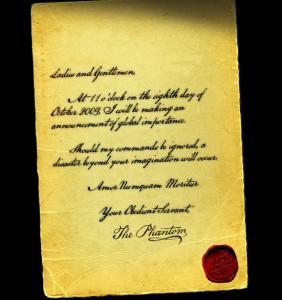 Ladies and Gentlemen,
At 11 o'clock on the eighth day of
October 2009, I will be making an
announcement of global importance.
Should my commands be ignored, a
disaster beyond your imagination will occur.
Amor Numquam Moritur
Your Obedient Servant,
The Phantom